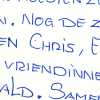 N. NOG DE Z
EN CHRIS, E
VRIENDINNE
ALD. SAME